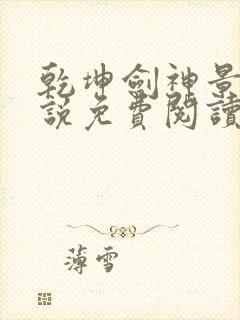 乾坤劍神景
說免費閱讀
薄雪